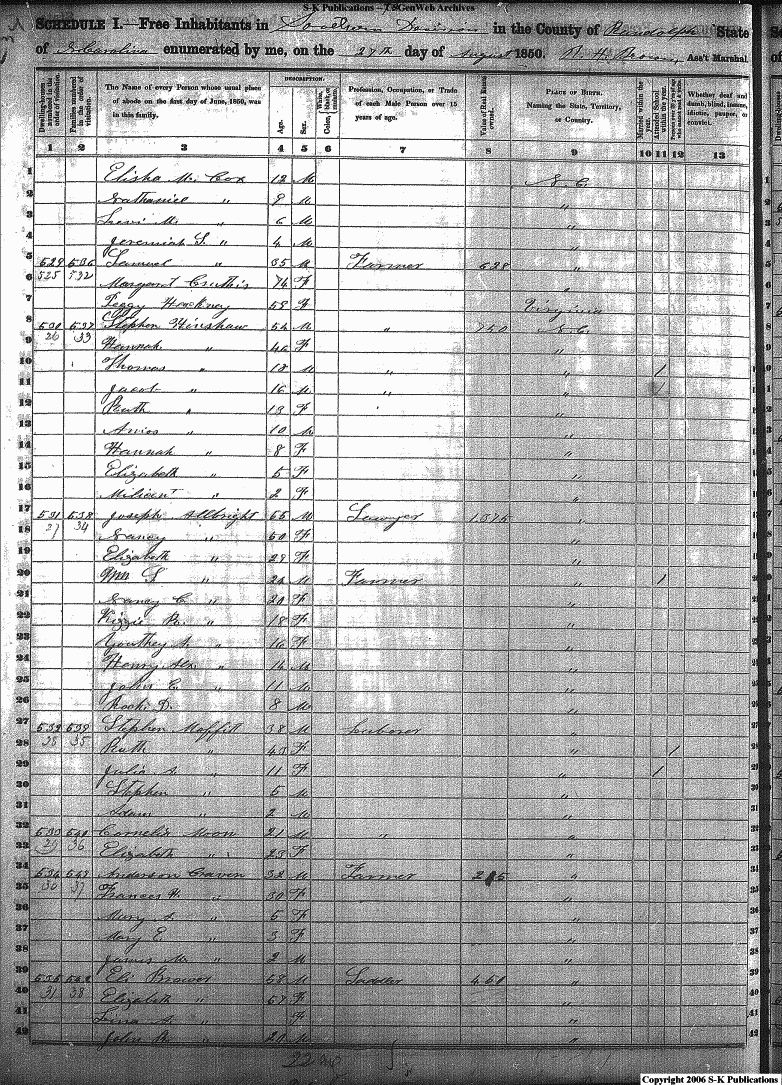 S-K Publications – USGenWeb Archives
SCHEDULE I.—Free Inhabitants in Southern Division in the County of Randolph State
of N. Carolina enumerated by me, on the 27th day of August 1850. Ass't Marshal
Dwelling-houses numbered in the order of visitation.
Families numbered in the order of visitation.
The Name of every Person whose usual place of abode on the first day of June, 1850, was in this family.
DESCRIPTION.
Age.
Sex.
White, Color, black, or mulatto.
Profession, Occupation, or Trade of each Male Person over 15 years of age.
Value of Real Estate owned.
PLACE OF BIRTH. Naming the State, Territory, or Country.
Married within the year.
Attended School within the year.
Whether deaf and dumb, blind, insane, idiotic, pauper, or convict.
1 2 3 4 5 6 7 8 9 10 11 12 13
1 Elisha M. Cox 12 M N. C.
2 Nathaniel " 9 M "
3 Levi M. " 6 M "
4 Jeremiah S. " 4 M "
5 529 536 Samuel " 35 M Farmer 528 "
6 525 532 Margaret Cruthis 74 F "
7 Peggy Hackney 58 F Virginia
8 530 537 Stephen Hinshaw 54 M " 750 N. C.
9 26 33 Hannah " 46 F "
10 Thomas " 18 M " " 1
11 Jacob " 16 M " " 1
12 Ruth " 13 F "
13 Amos " 10 M "
14 Hannah " 8 F "
15 Elizabeth " 5 F "
16 Milicent " 2 F "
17 531 538 Joseph Allbright 55 M 1,575 "
18 27 34 Nancy " 50 F "
19 Elizabeth " 29 F "
20 Wm S. " 24 M Farmer " 1
21 Nancy C. " 20 F "
22 " 18 F "
23 " 16 F "
24 Henry Alx " 14 M "
25 John C. " 11 M "
26 D. " 8 M "
27 532 539 Stephen Moffitt 38 M Laborer "
28 28 35 Ruth " 43 F " 1
29 Julia A. " 11 F " 1
30 Stephen " 5 M "
31 Adam " 2 M "
32 533 540 Cornelis Moon 21 M " "
33 29 36 Elizabeth " 23 F "
34 534 541 Anderson Craven 32 M Farmer "
35 30 37 Frances H. " 30 F "
36 " 5 F "
37 Mary E. " 3 F "
38 James M. " 2 M "
39 535 542 Eli Brower 58 M Saddler 450 "
40 31 38 Elizabeth " 57 F "
41 " F "
42 John " 20 M "
Copyright 2006 S-K Publications